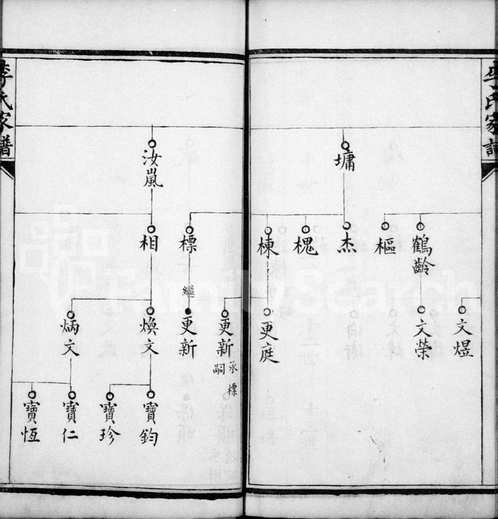 李氏家譜
墉
鶴齡
樞
杰
槐
棟
標
文煜
文榮
更庭
更新
承標嗣
繼
更新
汝嵐
相
煥文
炳文
寶鈞
寶珍
寶仁
寶恆
李氏家譜
FamilySearch